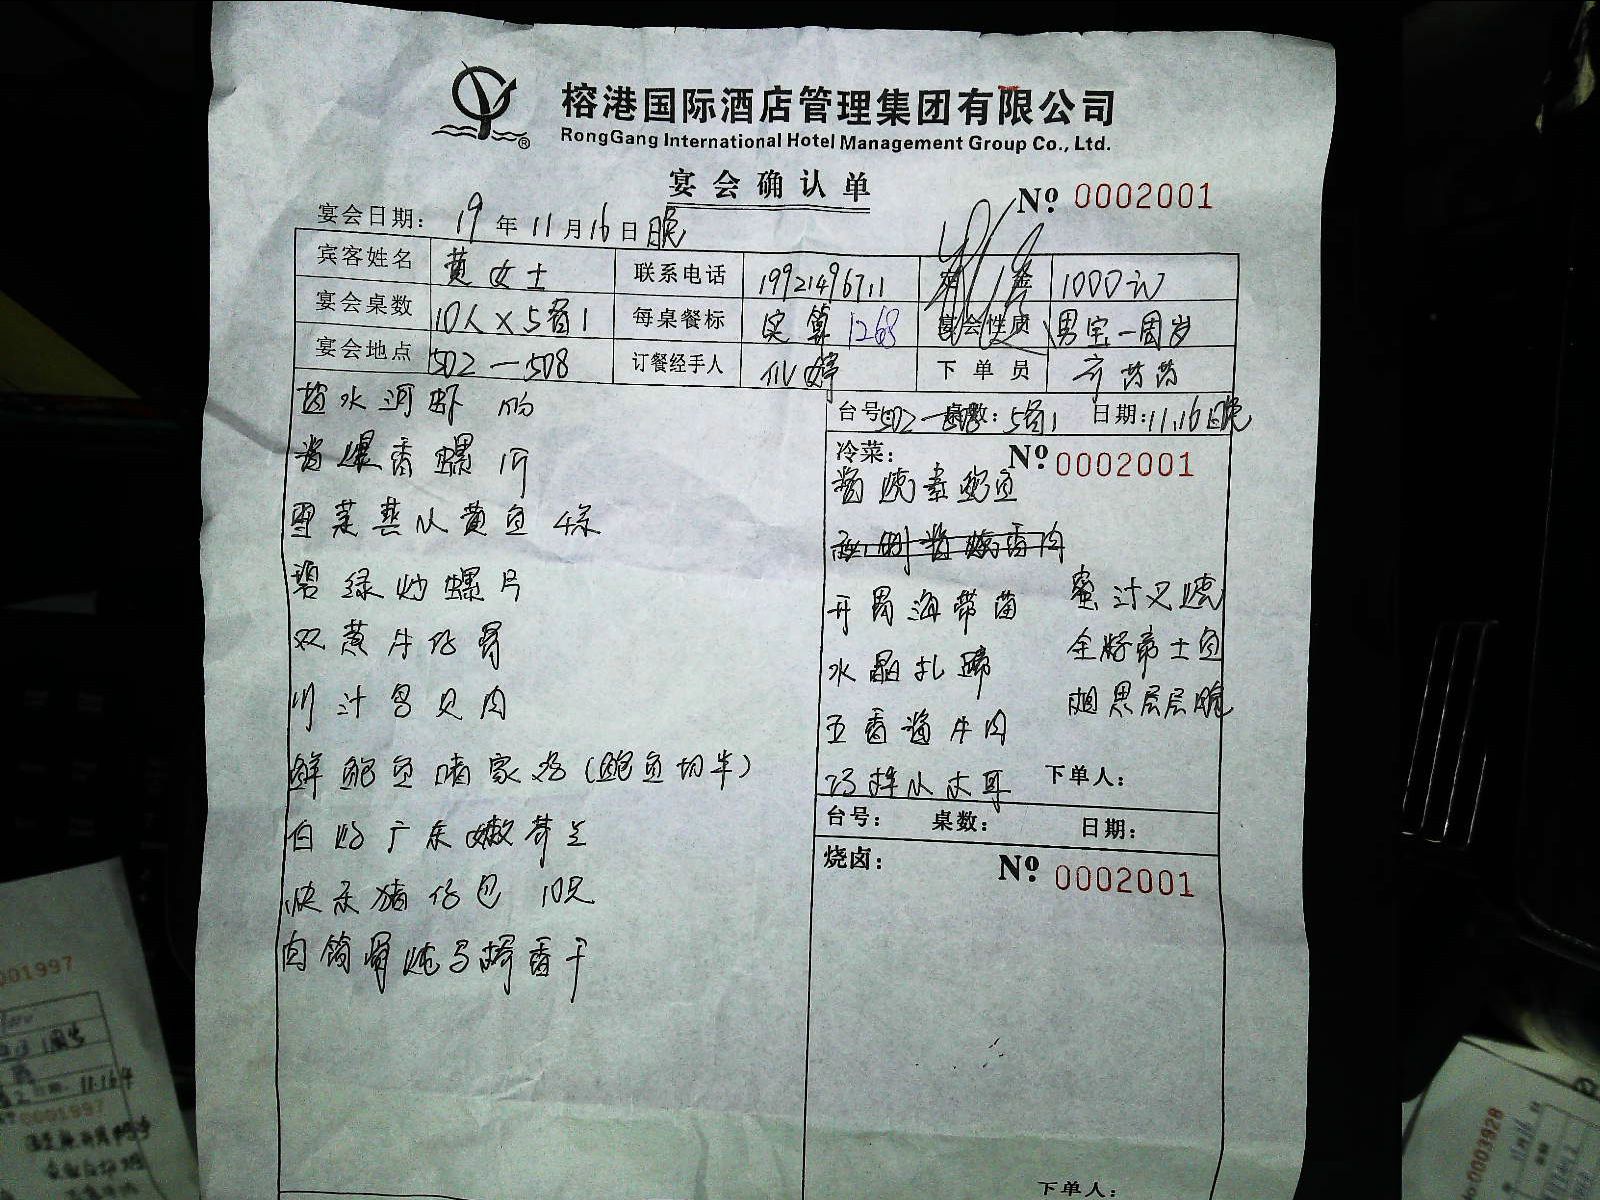 榕港国际酒店管理集团有限公司
RongGang International Hotel Management Group Co., Ltd.
宴会确认单
№ 0002001
宴会日期: 19年11月16日晚
宾客姓名 黄女士 联系电话 19921496711 定金 1000元
宴会桌数 10人×5备1 每桌餐标 实算 1268 宴会性质 男宝一周岁
宴会地点 502—508 订餐经手人 下单员
盐水河虾
酱爆香螺 1斤
雪菜蒸小黄鱼 4条
碧绿炒螺片
双葱牛仔骨
川汁 贝肉
鲜鲍鱼 家 (鲍鱼切半)
白灼广东嫩芥兰
快乐猪仔包 10只
肉筒骨炖马桥香干
台号: 502—508 桌数: 5备1 日期: 11.16晚
冷菜: № 0002001
酱烧素鲍鱼
酱 香肉
开胃海带苗
水晶扎蹄
五香酱牛肉
巧拌小木耳
蜜汁叉烧
金 帝士鱼
相思层层脆
下单人:
台号: 桌数: 日期:
烧卤: № 0002001
下单人:
0001997
11.16
0001997
0003928